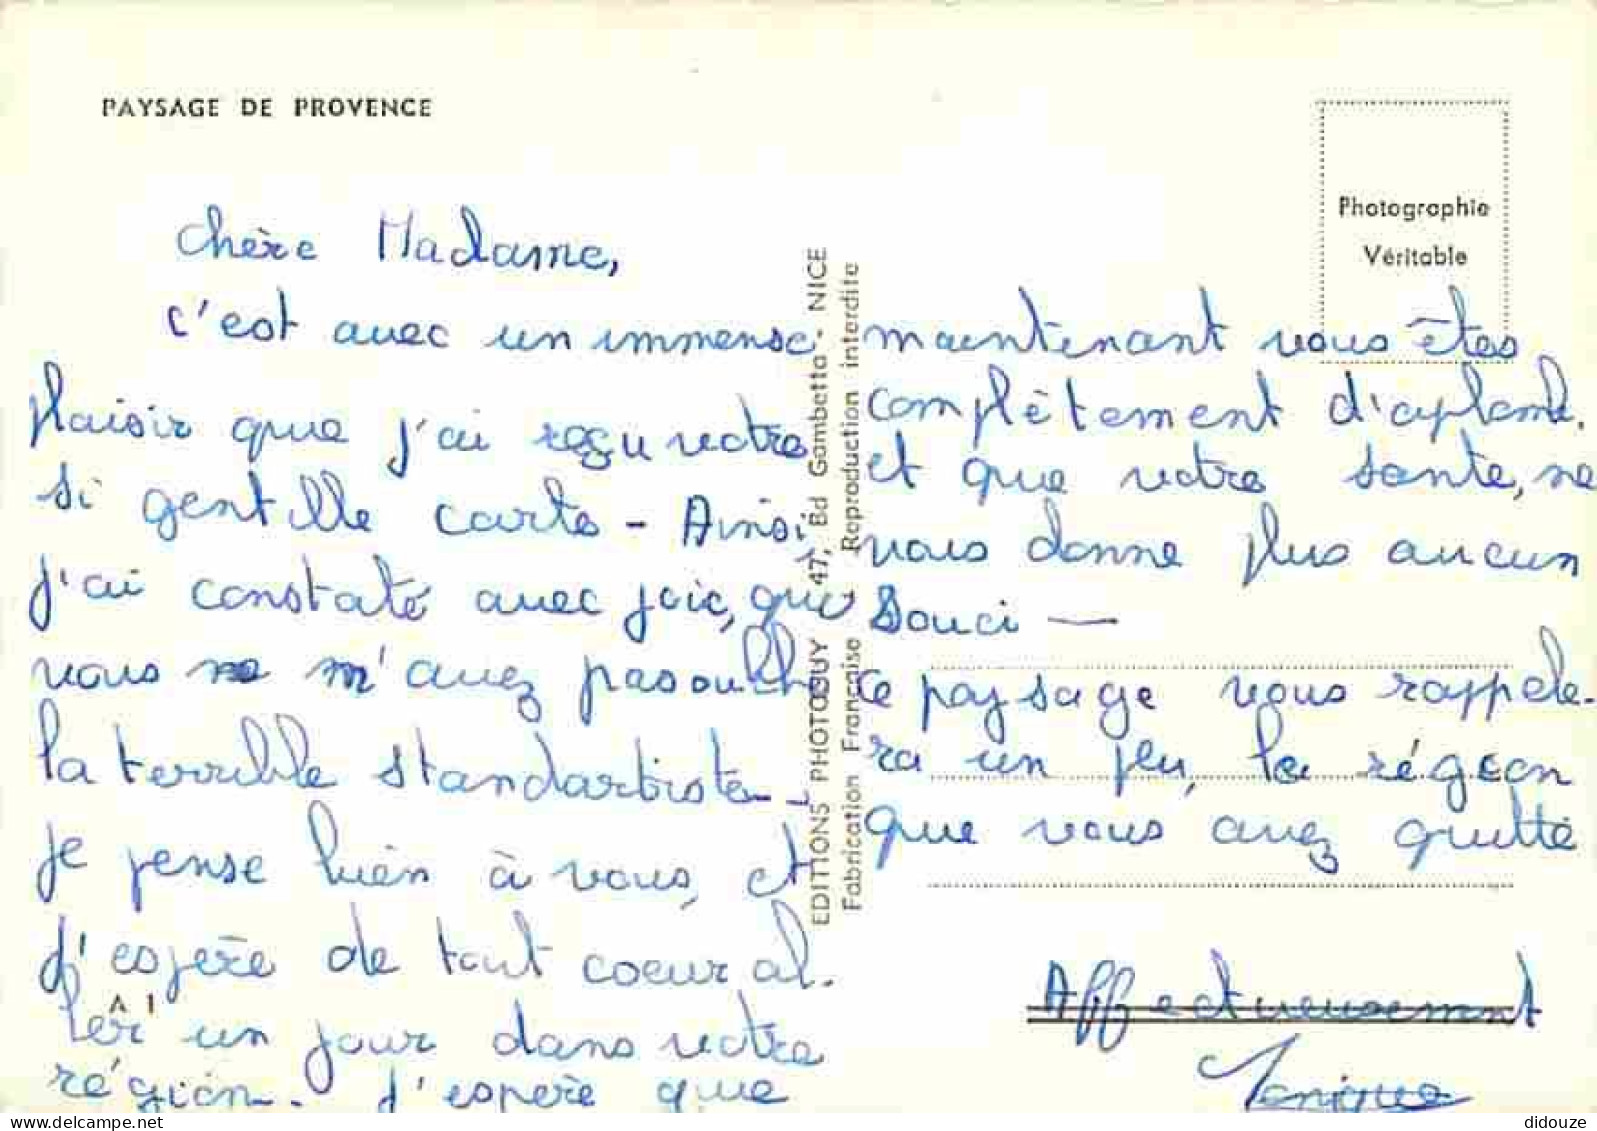 PAYSAGE DE PROVENCE
Photographie
Véritable
chère Madame,
c'est avec un immense
plaisir que j'ai reçu votre
si gentille carte - Ainsi
j'ai constaté avec joie, que
vous ne m'avez pas oublié
la terrible standardiste -
je pense bien à vous, et
j'espère de tout coeur al-
ler un jour dans votre
région. j'espère que
A 1
EDITIONS PHOTOGUY 47, Bd Gambetta - NICE
Fabrication Française Reproduction interdite
maintenant vous êtes
complètement d'aplomb.
et que votre sante, ne
vous donne plus aucun
Souci —
ce paysage vous rappele-
ra un peu, la région
que vous avez quitté
Affectueusement
delcampe.net
didouze